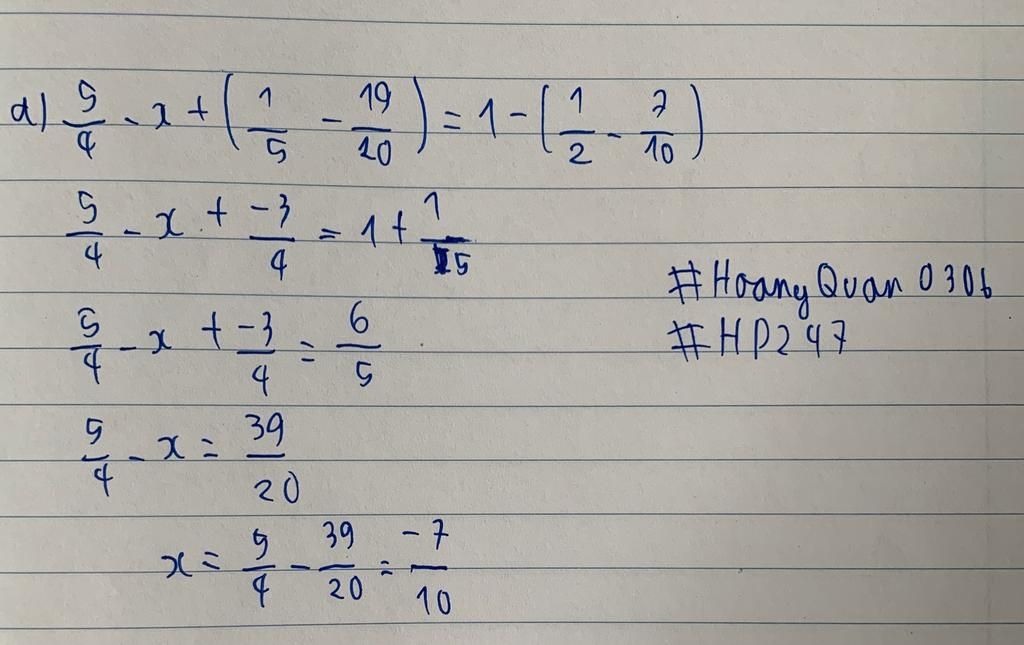 a) 5/4 - x + (1/5 - 19/20) = 1 - (1/2 - 7/10)
5/4 - x + -3/4 = 1 + 1/5
5/4 - x + -3/4 = 6/5
5/4 - x = 39/20
x = 5/4 - 39/20 = -7/10
#HoangQuan0306
#HP247